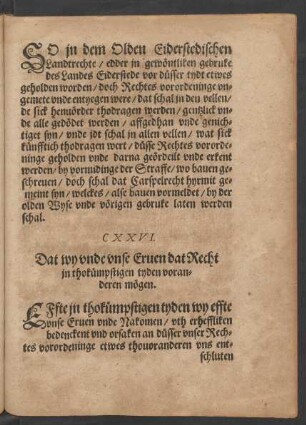 SO in dem Olden Eiderstedischen
Landtrechte / edder in gewöntliken gebruke
des Landes Eiderstede vor düsser tydt etwes
geholden worden / doch Rechtes vorordeninge vn-
gemete vnde entyegen were / dat schal in den vellen /
de sick hernörder thodragen werden / gentzlick vn-
de alle gedödet werden / affgedhan vnde genich-
tiget syn / vnde idt schal in allen vellen / wat sick
künfftich thodragen wert / düsse Rechtes vororde-
ninge geholden vnde darna geördeilt vnde erkent
werden / by vormidinge der Straffe / wo bauen ge-
schreuen / doch schal dat Carspelrecht hyrmit ge-
meint syn / welckes / alse bauen vormeldet / by der
olden Wyse vnde vörigen gebruke laten werden
schal.
CXXVI.
Dat wy vnde vnse Eruen dat Recht
in thokümpstigen tyden voran-
deren mögen.
EFfte in thokümpstigen tyden wy effte
vnse Eruen vnde Nakomen / vth erhefliken
bedenckent vnd orsaken an düsser vnser Rech-
tes vorordeninge etwes thouoranderen vns ent-
schluten